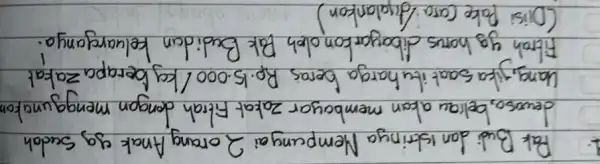 1. Pak Budi dan Istrinya Mempunyai 2 orang Anak yg Sudah
dewasa, beliau akan membayar zakat Fitrah dengan menggunakan
Uang, jika saat itu harga beras Rp. 15.000 / kg, berapa zakat
Fitrah yg harus dibayarkan oleh Pak Budi dan keluarganya.
(Diisi Pake Cara / dijalankan)